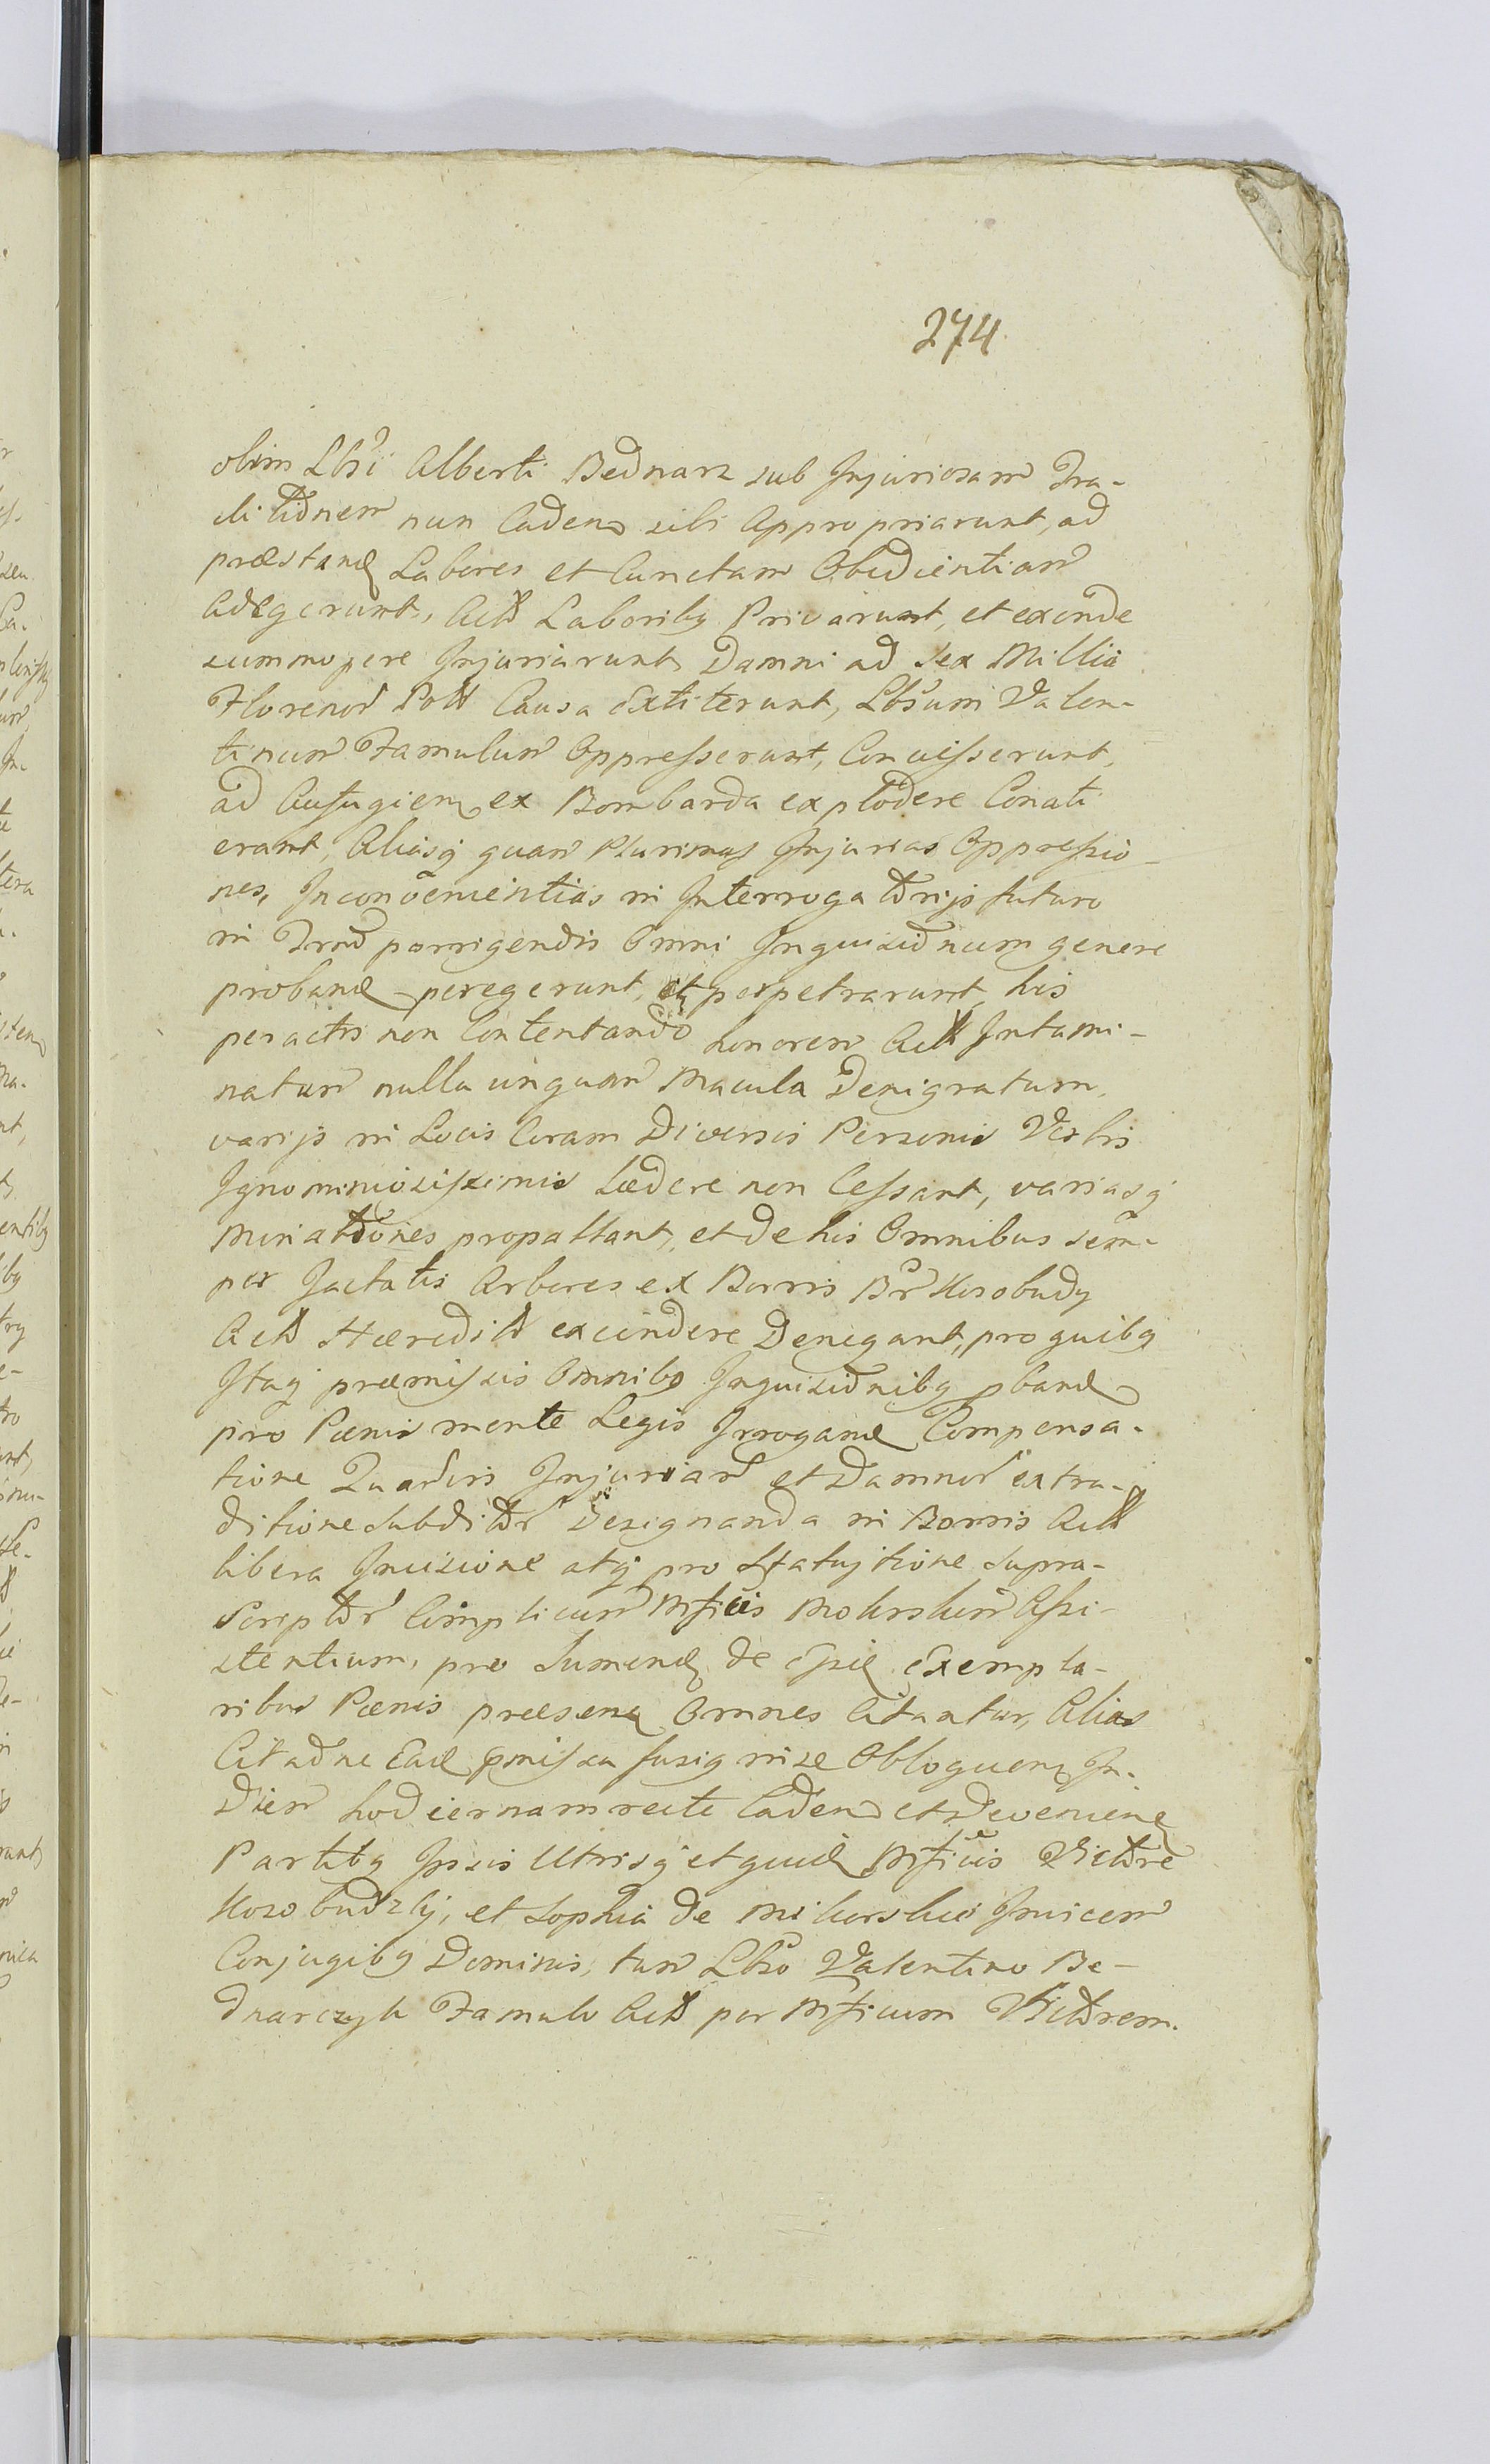 274
olim Lbri Alberti Bednarz sub Injuriosam Tra-
ditiđnem nun Caden sibi Appropriarunt, ad
præstand Labores et Cunctam Obedientiam
Adegerunt, Actt Laboribq Privarunt, et exinde
summopere Injuriarunt, Damni ad Sex Millia
Florenor Poll Causa Extiterunt, Lbrum Valen-
tinum Famulum Oppresserunt, Concusserunt,
ad Aufugien ex Bombarda explodere Conati
erant, Aliasq quam Plurimas Injurias Oppressio-
nes, Inconvenientias in Interrogatoriis futuro
in Trnd porrigendis Omni Inquisiđnum genere
proband peregerunt, et perpetrarunt, his
peractis non Contentando honorem Actt Intami-
natum nulla unquam Macula Denigratum,
varijs in Locis Coram Diversis Personis Verbis
Ignominiosissimis Lædere non Cessant, variasq
Minatđones propallant, et de his Omnibus sem-
per Jactatis Arbores ex Borris Br Kosobudy
Actt Hæredit excindere Denegant, pro quibq
Itaq præmissis Omnibq Inquisiđnibq pband
pro Pænis mente Legis Irrogand Compensa-
tione Injuriar et Damnor extra-
ditione Subditor Designanda in Borris Actt
libera Incisione atq pro Statuitione Supra-
Scriptor Complicum Mficis Mokrskim Assi-
stentium, pro Sumend de Exempla-
ribus Pænis præsen Omnes Citantur, Alias
Citađne Ead pmissa fusiq in se Obloquen In
Diem hodiernam recte Caden et Devenien
Partibq Ipsis Utrisq et quid Mficis Victđre
Kosobudzkij, et Sophia de Mikorskie Invicem
Conjugibq Dominis, tum Lbro Valentino Be-
dnarczyk Famulo Actt per Mficum Victđrem.